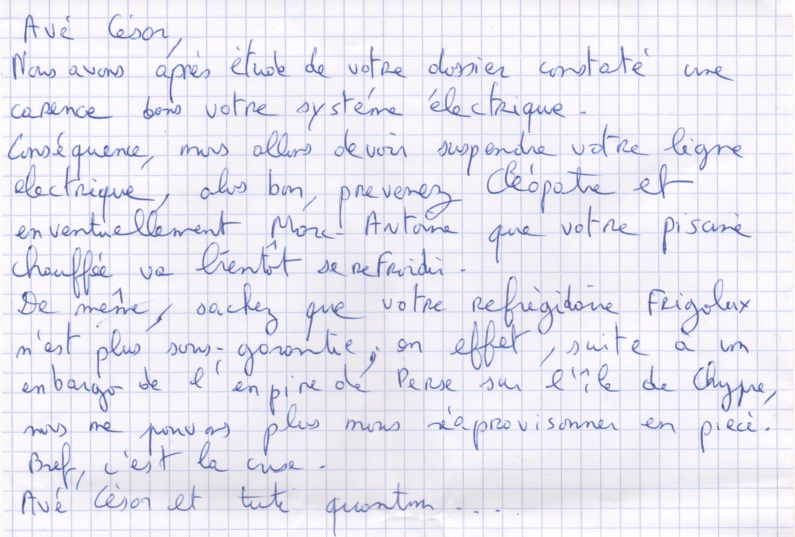 Avé César,
Nous avons après étude de votre dossier constaté une
carence dans votre système électrique.
Conséquence, nous allons devoir suspendre votre ligne
electrique, alors bon, prevenez Cléôpatre et
enventuellement Marc-Antoine que votre piscine
chauffée va bientôt se refroidir.
De même, sachez que votre refrégidaire Frigolux
n'est plus sous-garantie, en effet, suite à un
enbargo de l'enpire de Perse sur l'île de Chypre,
nous ne pouvons plus nous réaprovisonner en piecé.
Bref, c'est la crise.
Avé César et tuti quantum ....